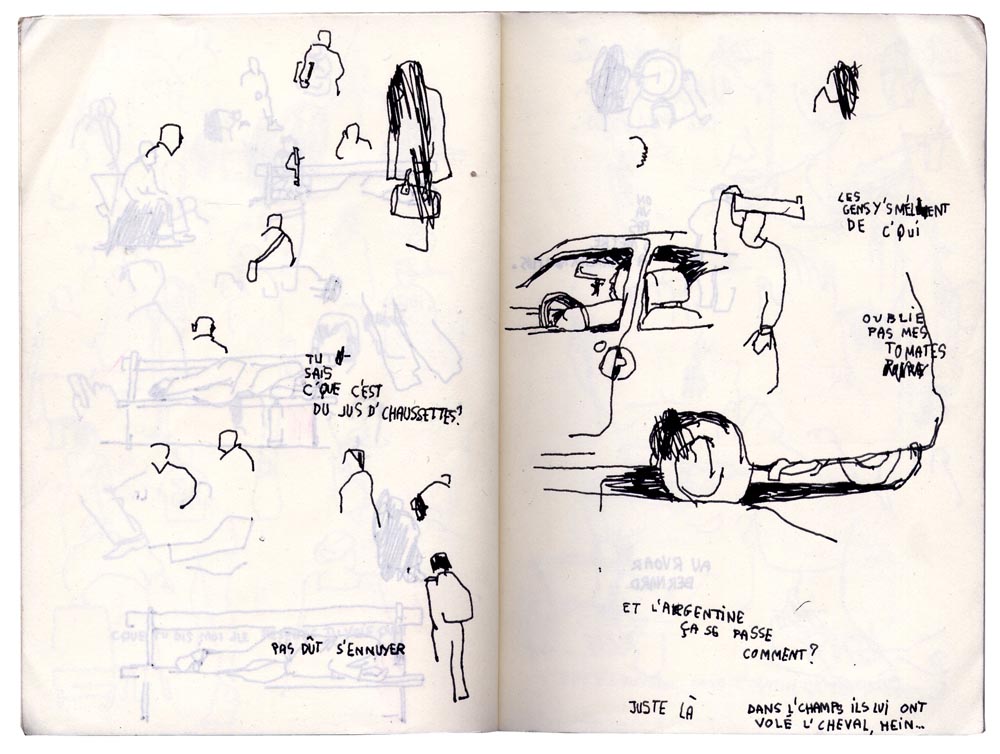 TU
SAIS
C'QUE C'EST
DU JUS D'CHAUSSETTES?
PAS DÛT S'ENNUYER
LES
GENS Y'S MÉLENT
DE C'QUI
OUBLIE
PAS MES
TOMATES
AU RVOAR
BERNARD
ET L'ARGENTINE
ÇA SE PASSE
COMMENT?
JUSTE LÀ
DANS L'CHAMPS ILS LUI ONT
VOLÉ L'CHEVAL, HEIN...